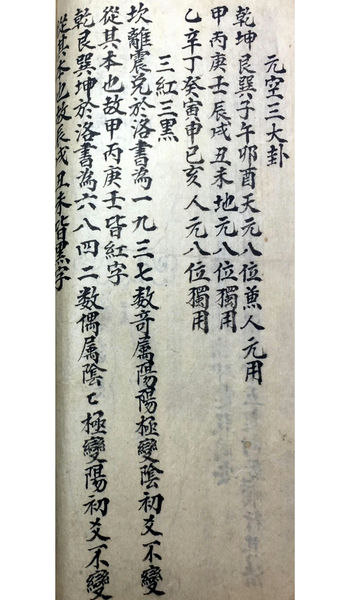 元空三大卦
乾坤艮巽子午卯酉天元八位兼人元用
甲丙庚壬辰戌丑未地元八位獨用
乙辛丁癸寅申巳亥人元八位獨用
三紅三黑
坎離震兌於洛書為一九三七數奇屬陽陽極變陰初爻不變
從其本也故甲丙庚壬皆紅字
乾艮巽坤於洛書為六八四二數偶屬陰匕極變陽初爻不變
從其本也故辰戌丑未皆黑字